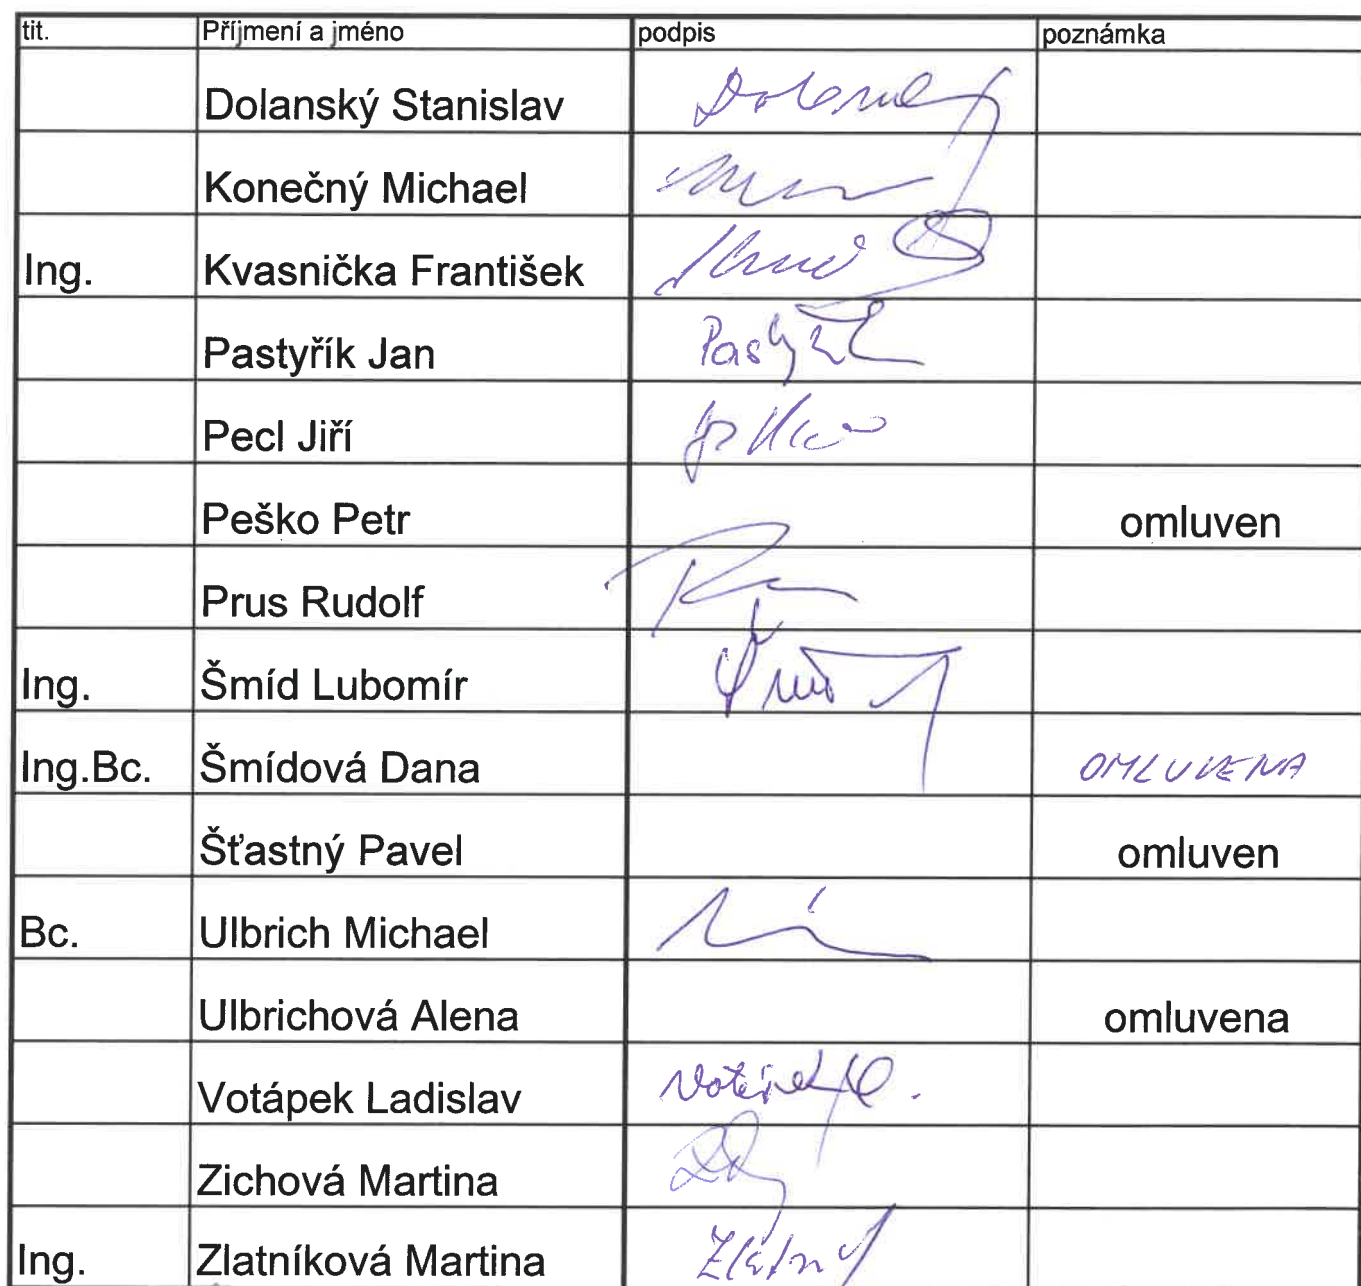 tit. Příjmení a jméno podpis poznámka
Dolanský Stanislav
Konečný Michael
Ing. Kvasnička František
Pastyřík Jan
Pecl Jiří
Peško Petr omluven
Prus Rudolf
Ing. Šmíd Lubomír
Ing.Bc. Šmídová Dana OMLUVENA
Šťastný Pavel omluven
Bc. Ulbrich Michael
Ulbrichová Alena omluvena
Votápek Ladislav
Zichová Martina
Ing. Zlatníková Martina